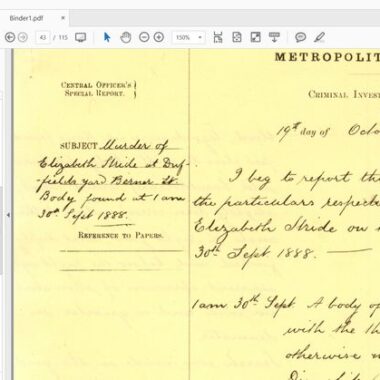 Binder1.pdf
43 / 115
150%
METROPOLIT
CENTRAL OFFICER'S
SPECIAL REPORT.
CRIMINAL INVES
19th day of Octo
SUBJECT Murder of
Elizabeth Stride at Duf-
-fields yard Berner St.
Body found at 1 am
30th Sept 1888.
REFERENCE TO PAPERS.
I beg to report th
the particulars respecte
Elizabeth Stride on
30th Sept 1888.
1am 30th Sept A body of
with the th
otherwise m